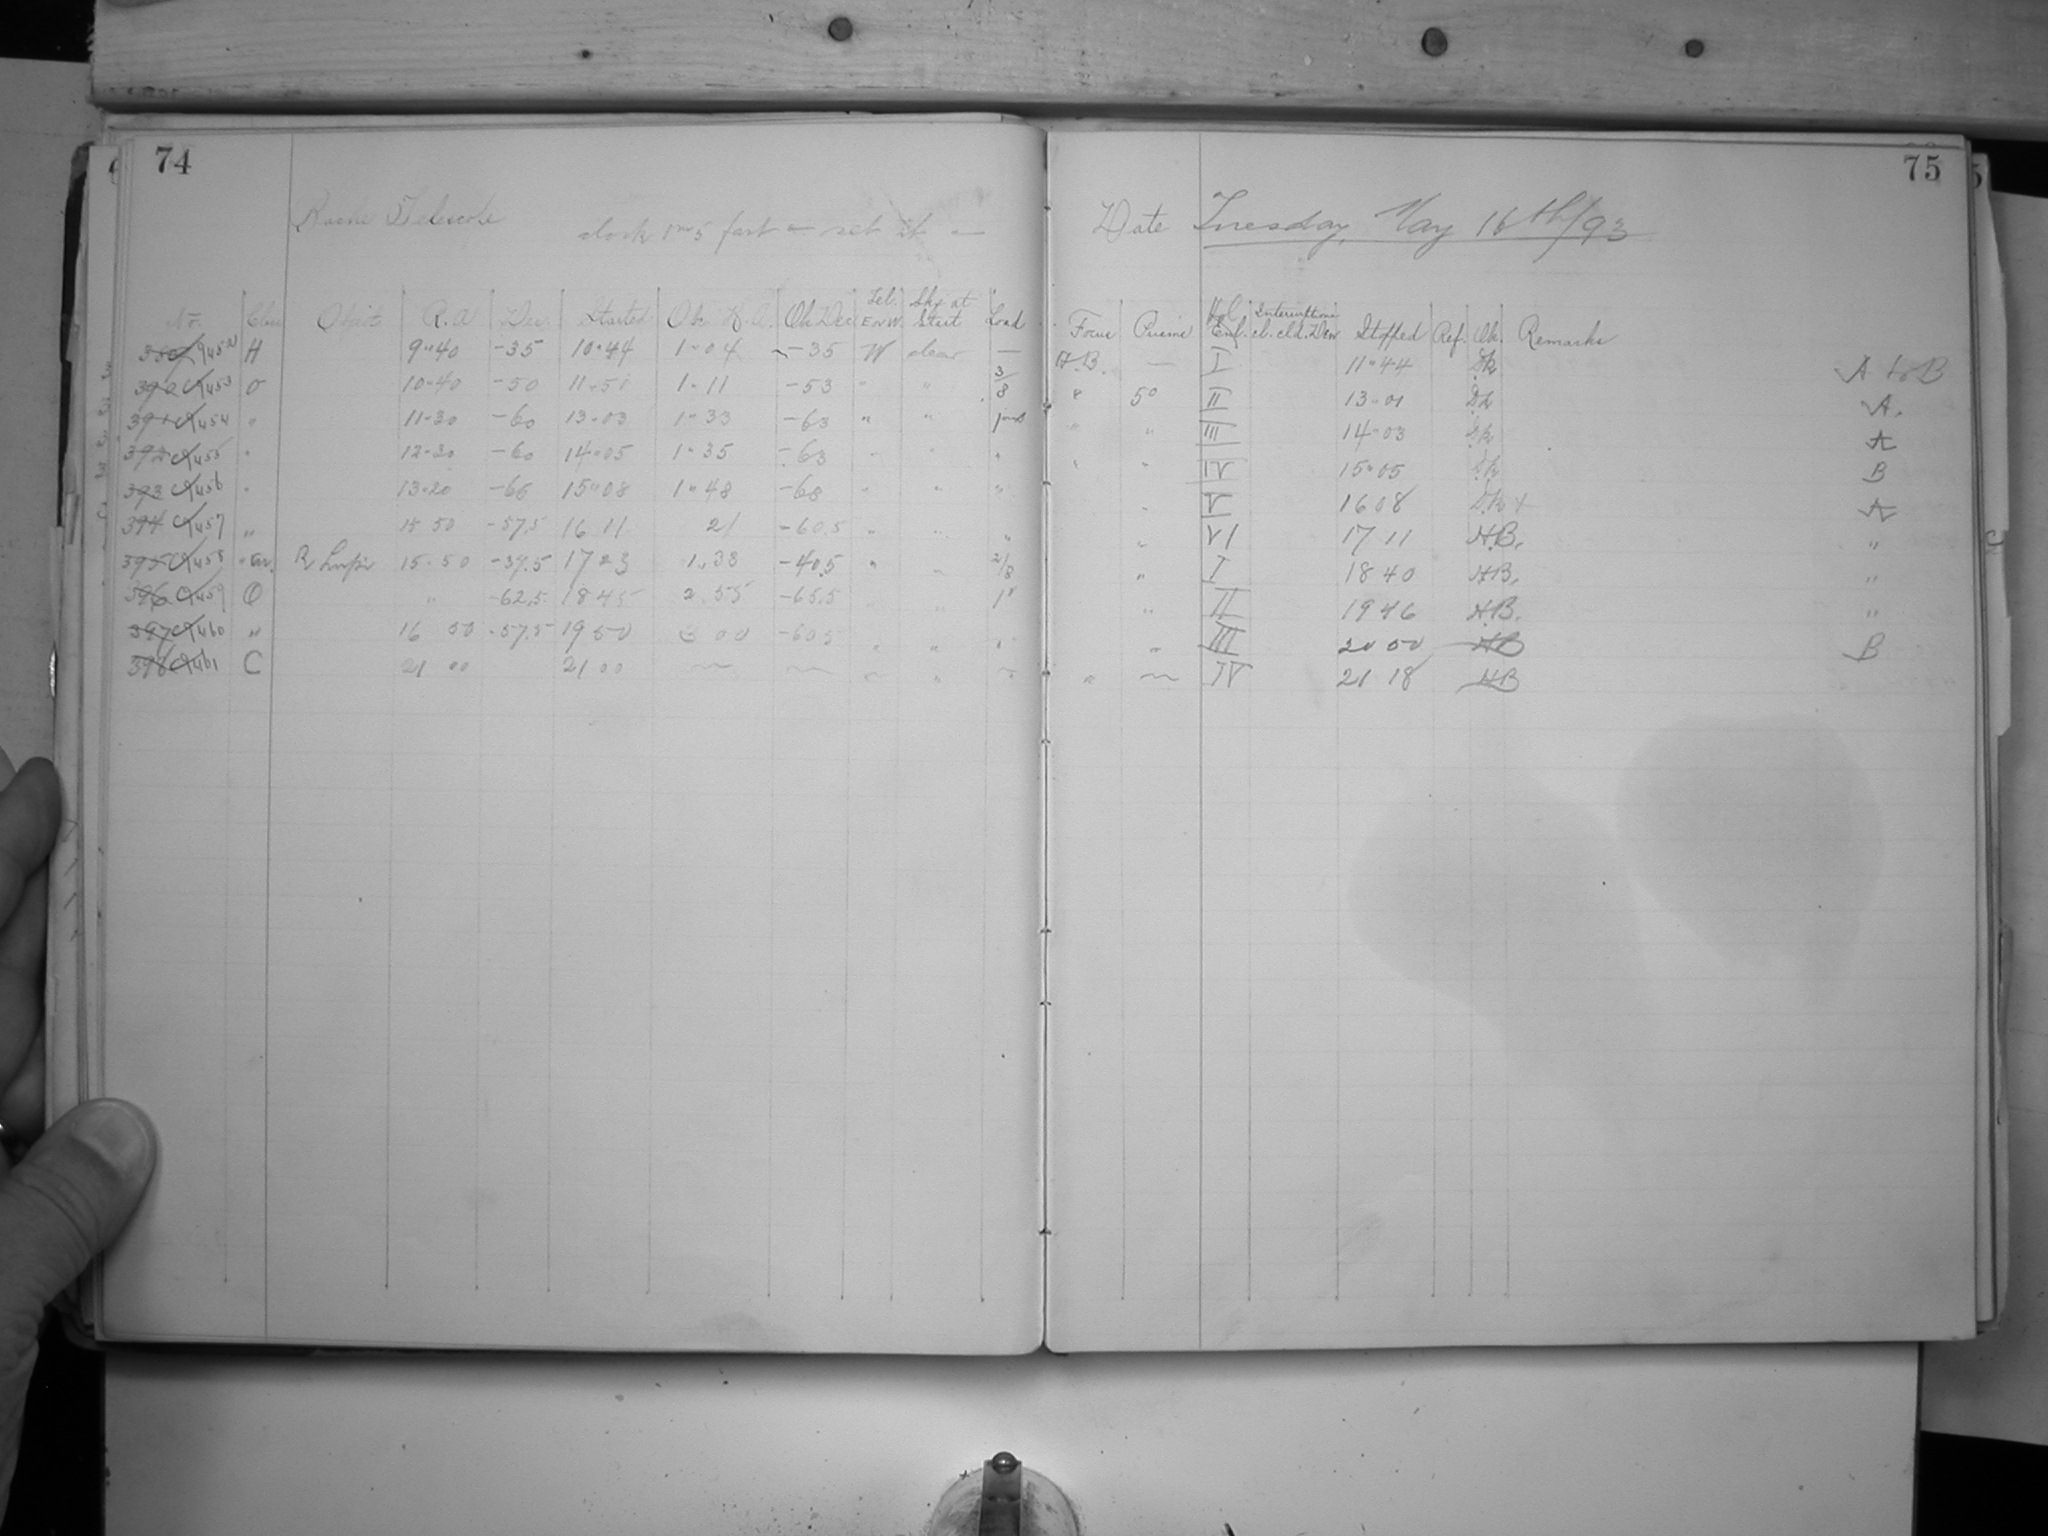 74
75
Telescope clock 1m5 fast — set it —
Date Tuesday, May 16th/93
No. Class Object R.A Dec. Started Ob. H.A. Ob Dec Tel. E or W. Sky at Start Load Focus Prism Enl. Interruptions cl. cld. Dew Stopped Ref. Ob. Remarks
H 9 40 -35 10 44 1 04 -35 W clear — H.B. — I 11 44 A to B
453 O 10 40 -50 11 51 1 11 -53 " " 3/8 " 5° II 13 01 A.
391 454 " 11 30 -60 13 03 1 33 -63 " " " " III 14 03 A
392 455 " 12 30 -60 14 05 1 35 -63 " " " " " IV 15 05 B
393 456 " 13 20 -65 15 08 1 48 -68 " " " " " V 16 08 A
394 457 " 15 50 -57.5 16 11 21 -60.5 " " " " VI 17 11 H.B. "
395 458 R Lupi 15 50 -37.5 17 23 1 33 -40.5 " " 2/8 " I 18 40 H.B. "
396 459 O " -62.5 18 45 2 55 -65.5 " " " II 19 46 H.B. "
397 460 " 16 50 -57.5 19 50 3 00 -60.5 " " " " III 20 50 HB B
398 461 C 21 00 21 00 — — " " — " — IV 21 18 HB